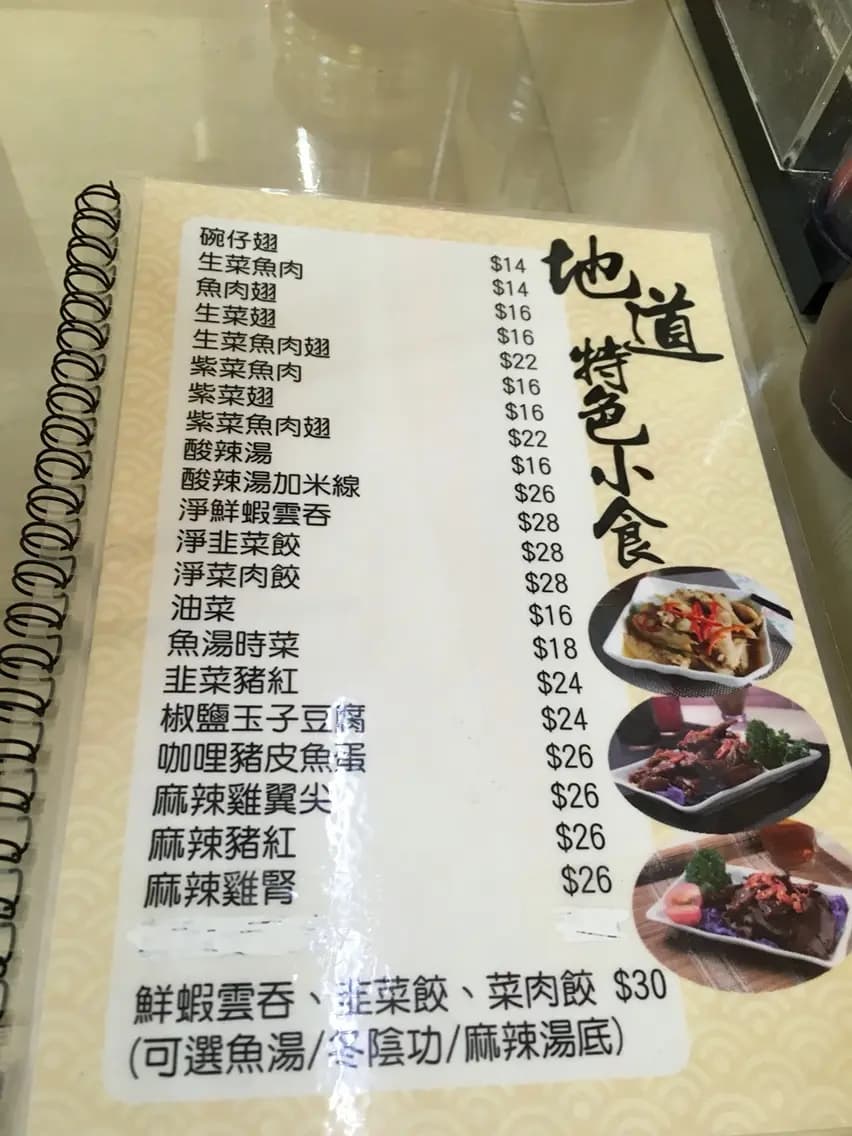 地道
特色小食
碗仔翅 $14
生菜魚肉 $14
魚肉翅 $16
生菜翅 $16
生菜魚肉翅 $22
紫菜魚肉 $16
紫菜翅 $16
紫菜魚肉翅 $22
酸辣湯 $16
酸辣湯加米線 $26
淨鮮蝦雲吞 $28
淨韭菜餃 $28
淨菜肉餃 $28
油菜 $16
魚湯時菜 $18
韭菜豬紅 $24
椒鹽玉子豆腐 $24
咖哩豬皮魚蛋 $26
麻辣雞翼尖 $26
麻辣豬紅 $26
麻辣雞腎 $26
鮮蝦雲吞、韭菜餃、菜肉餃 $30
(可選魚湯/冬陰功/麻辣湯底)